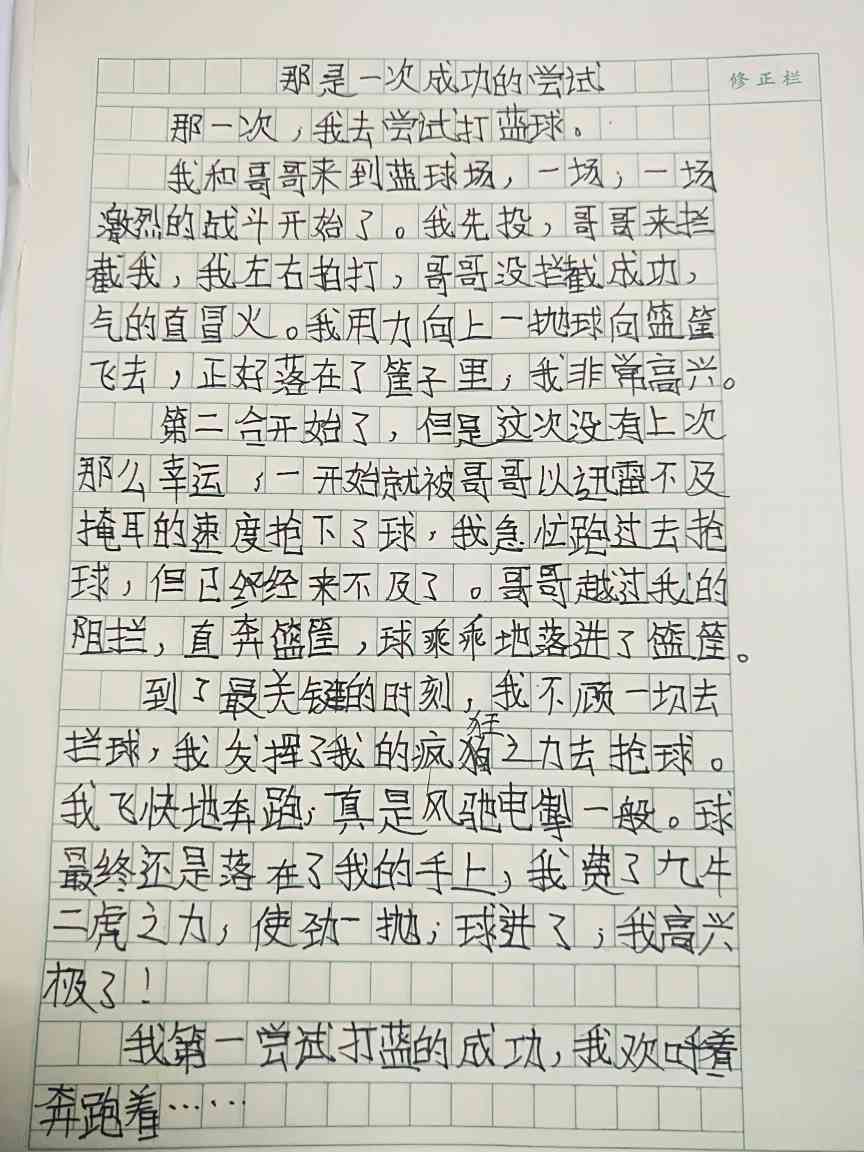 那是一次成功的尝试
修正栏
那一次，我去尝试打蓝球。
我和哥哥来到蓝球场，一场，一场
激烈的战斗开始了。我先投，哥哥来拦
截我，我左右拍打，哥哥没拦截成功，
气的直冒火。我用力向上一抛球向篮筐
飞去，正好落在了筐子里，我非常高兴。
第二合开始了，但是这次没有上次
那么幸运，一开始就被哥哥以迅雷不及
掩耳的速度抢下了球，我急忙跑过去抢
球，但已经来不及了。哥哥越过我的
阻拦，直奔篮筐，球乘乖地落进了篮筐。
到了最关键的时刻，我不顾一切去
拦球，我发挥了我的疯狂之力去抢球。
我飞快地奔跑，真是风驰电掣一般。球
最终还是落在了我的手上，我费了九牛
二虎之力，使劲一抛，球进了，我高兴
极了！
我第一尝试打蓝的成功，我欢呼着
奔跑着……